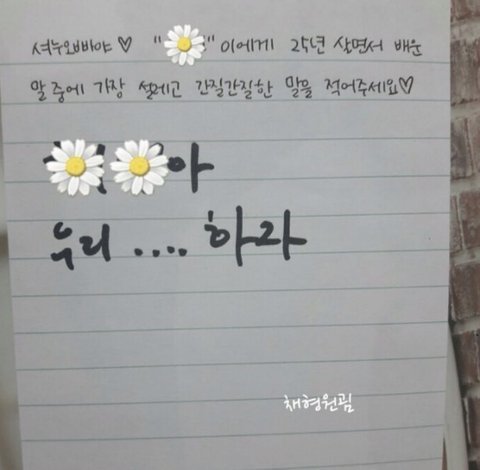 셔누오빠야♡ "  "이에게 25년 살면서 배운
말 중에 가장 설레고 간질간질한 말을 적어주세요♡
아
우리 .... 하자
채형원굄